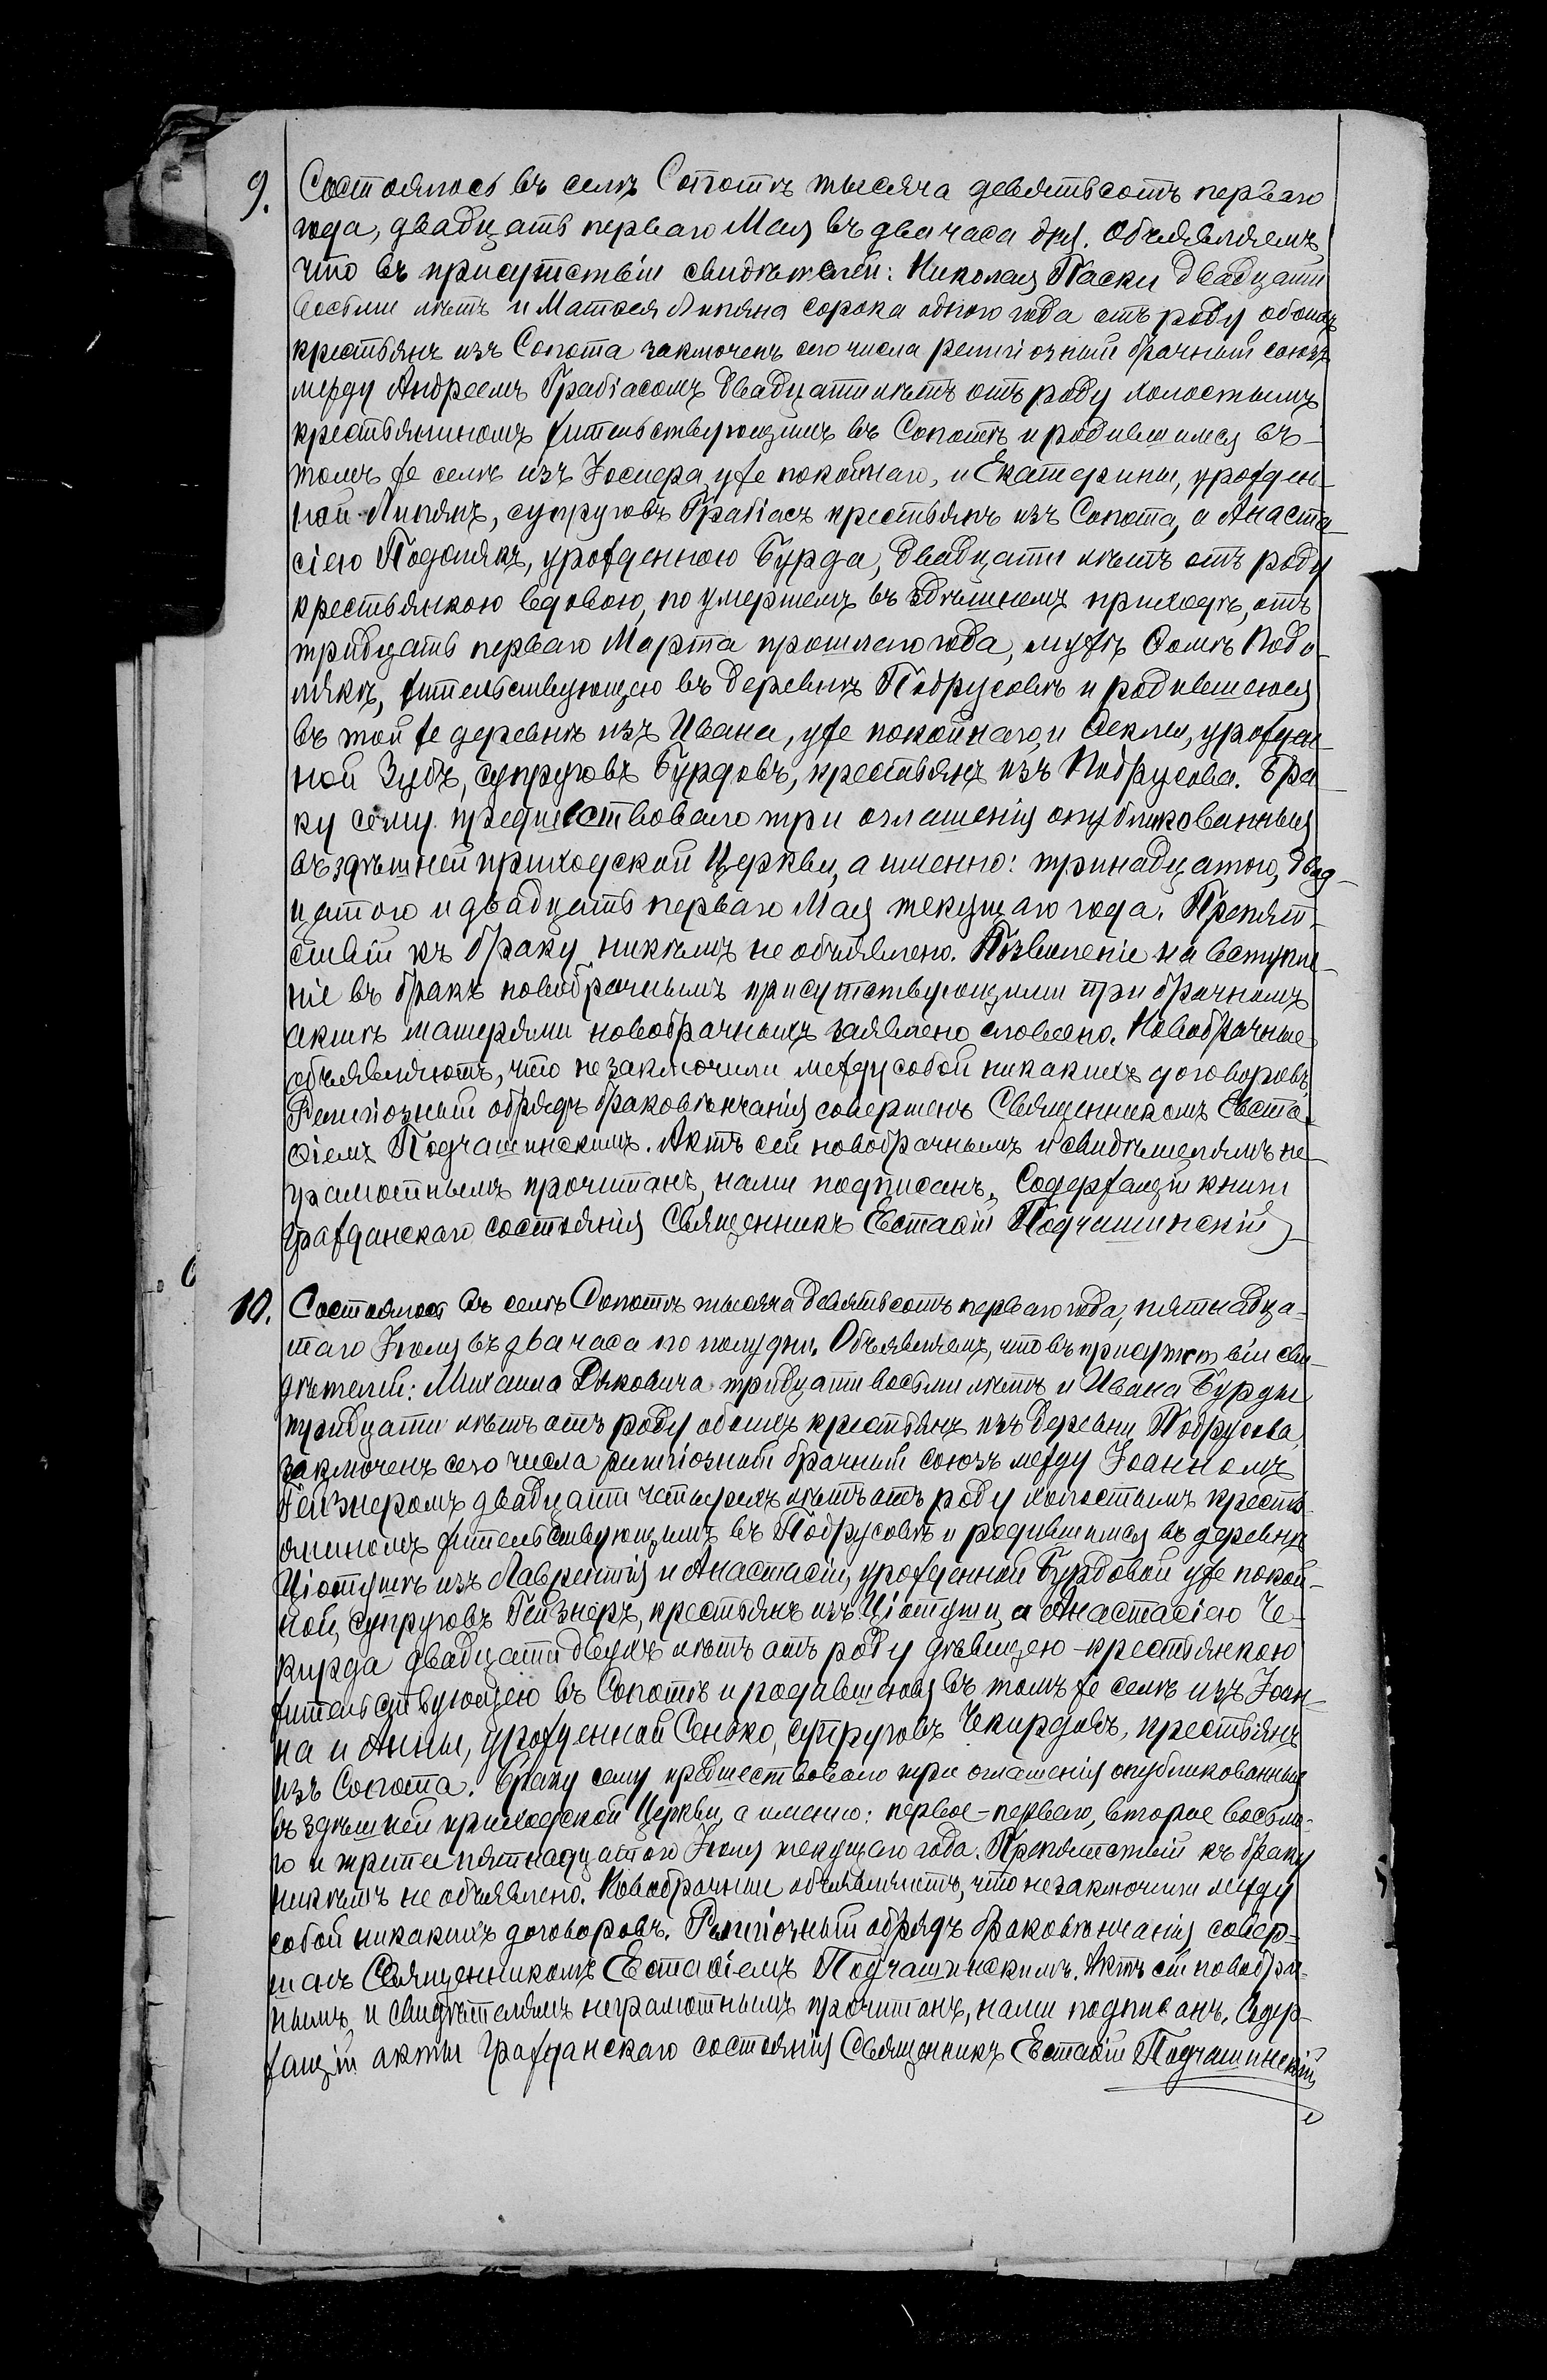 9. Состоялось въ селѣ Сопотѣ тысяча девятьсотъ перваго
года, двадцать перваго Мая въ два часа дня. Объявляемъ,
что въ присутствіи свидѣтелей: Николая Паски двадцати
восьми лѣтъ и Матѳея Липяна сорока одного года отъ роду обоихъ
крестьянъ изъ Сопота заключенъ сего числа религіозный брачный союзъ
между Андреемъ Грабіасомъ двадцати лѣтъ отъ роду холостымъ
крестьяниномъ жительствующимъ въ Сопотѣ и родившимся въ-
томъ же селѣ изъ уже покойнаго, и Екатерины, урожден-
ной Липянъ, супруговъ Грабіасъ крестьянъ изъ Сопота, а Анаста-
сіею Подолякъ, урожденною Бурда, двадцати лѣтъ отъ роду
крестьянкою вдовою, по умершемъ въ здѣшнемъ приходѣ, отъ
тридцать перваго Марта прошлаго года, мужѣ Ѳомѣ Подо-
лякѣ, жительствующею въ деревнѣ Подрусовѣ и родившеюся
въ той же деревнѣ изъ Ивана, уже покойнаго, и Ѳеклы, урожден-
ной Зубъ, супруговъ Бурдовъ, крестьянъ изъ Подрусова. Бра-
ку сему предшествовало три оглашенія опубликованныя
въ здѣшней приходской Церкви, а именно: тринадцатого, двад-
цатого и двадцать перваго Мая текущаго года. Препят-
ствій къ браку никѣмъ не объявлено. Позволеніе на вступле-
ніе въ бракъ новобрачнымъ присутствующими при брачномъ
актѣ матерями новобрачныхъ заявлено словесно. Новобрачные
объявляютъ, что не заключили между собой никакихъ договоровъ.
Религіозный обрядъ браковѣнчанія совершенъ Священникомъ Евста-
ѳіемъ Подчашинскимъ. Актъ сей новобрачнымъ и свидѣтелямъ не-
грамотнымъ прочитанъ, нами подписанъ. Содержащій книги
гражданскаго состоянія Священникъ Евстаѳій Подчашинскій
10. Состоялось въ селѣ Сопотѣ тысяча девятьсотъ перваго года, пятнадца-
таго Іюля въ два часа по полудни. Объявляемъ, что въ присутствіи сви-
дѣтелей: Михаила Дяковича тридцати восьми лѣтъ и Ивана Бурды
тридцати лѣтъ отъ роду обоихъ крестьянъ изъ деревни Подрусова
заключенъ сего числа религіозный брачный союзъ между Іоанномъ
Гейзнеромъ двадцати четырехъ лѣтъ отъ роду холостымъ кресть-
яниномъ жительствующимъ въ Подрусовѣ и родившимся въ деревнѣ
Ціотушѣ изъ Лаврентія и Анастасіи, урожденной Бурдовой уже покой-
ной, супруговъ Гейзнеръ, крестьянъ изъ Ціотуши, а Анастасіею Че-
кирда двадцати двухъ лѣтъ отъ роду дѣвицею-крестьянкою
жительствующею въ Сопотѣ и родившеюся въ томъ же селѣ изъ Іоан-
на и Анны, урожденной Сенько, супруговъ Чекирдовъ, крестьянъ
изъ Сопота. Браку сему предшествовало три оглашенія опубликованныя
въ здѣшней приходской Церкви, а именно: первое-перваго, второе восьма-
го и третіе пятнадцатого Іюля текущаго года. Препятствій къ браку
никѣмъ не объявлено. Новобрачные объявляютъ, что не заключили между
собой никакихъ договоровъ. Религіозный обрядъ браковѣнчанія совер-
шенъ Священникомъ Евстаѳіемъ Подчашинскимъ. Актъ сей новобрач-
нымъ и свидѣтелямъ неграмотнымъ прочитанъ, нами подписанъ. Содер-
жащій акты гражданскаго состоянія Священникъ Евстаѳій Подчашинскій